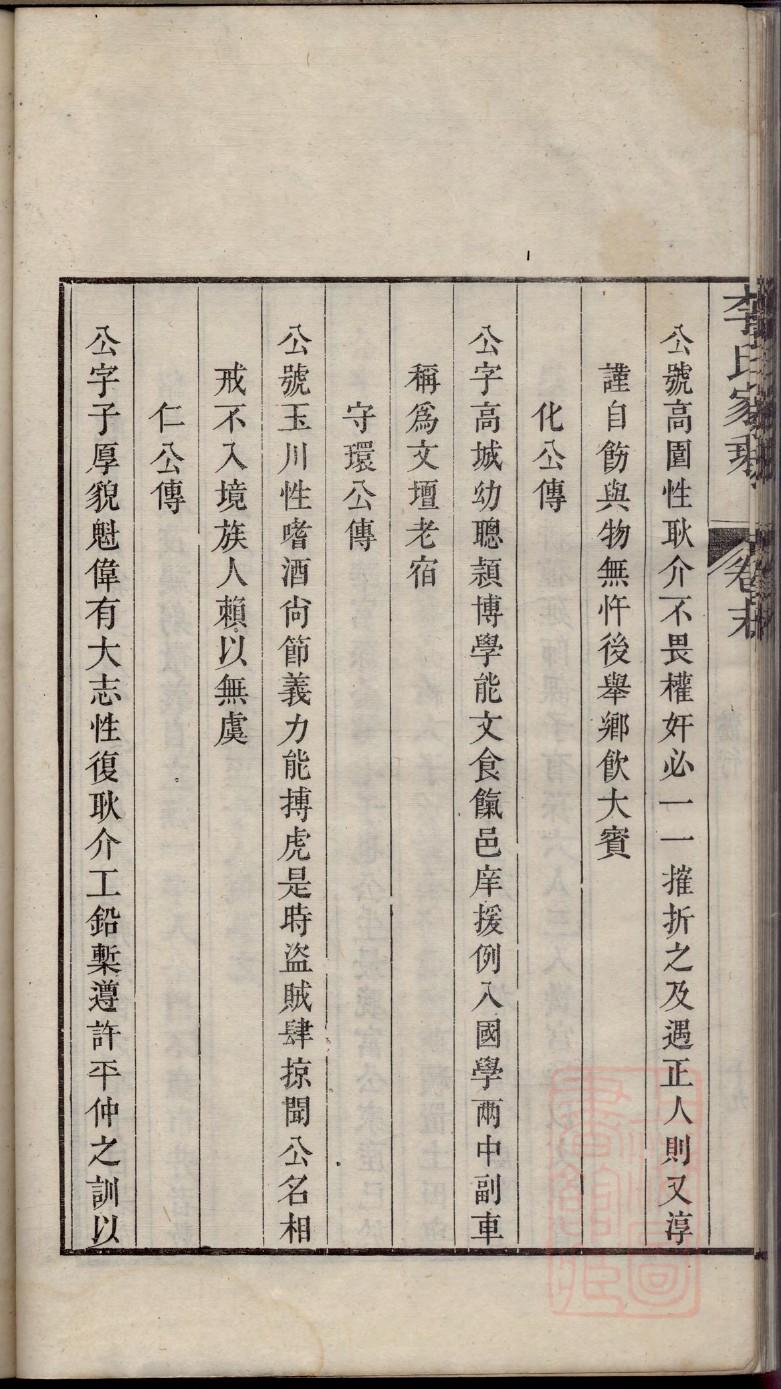 李氏家乘
卷末
公號高園性耿介不畏權奸必一一摧折之及遇正人則又淳
謹自飭與物無忤後舉鄉飲大賓
化公傳
公字高城幼聰頴博學能文食餼邑庠援例入國學兩中副車
稱爲文壇老宿
守環公傳
公號玉川性嗜酒尙節義力能搏虎是時盜賊肆掠聞公名相
戒不入境族人賴以無虞
仁公傳
公字子厚貌魁偉有大志性復耿介工鉛槧遵許平仲之訓以